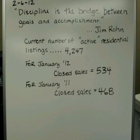 2-6-12
"Discipline is the bridge between
goals and accomplishment"
Jim Rohn
Current number of "active" residential
listings..... 4,247
For January '12
Closed sales = 534
For January '11
Closed sales = 468